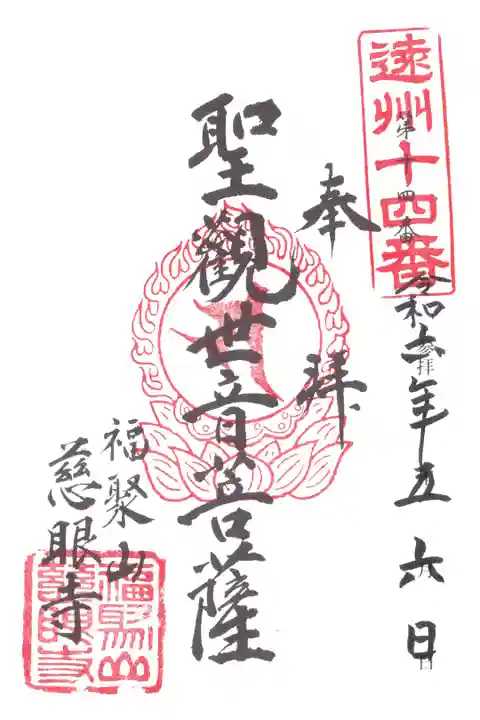 遠州十四番
第十四番
令和年五六日
参拝
奉拜
聖觀世音菩薩
福聚山
慈眼寺
福聚山
慈眼寺